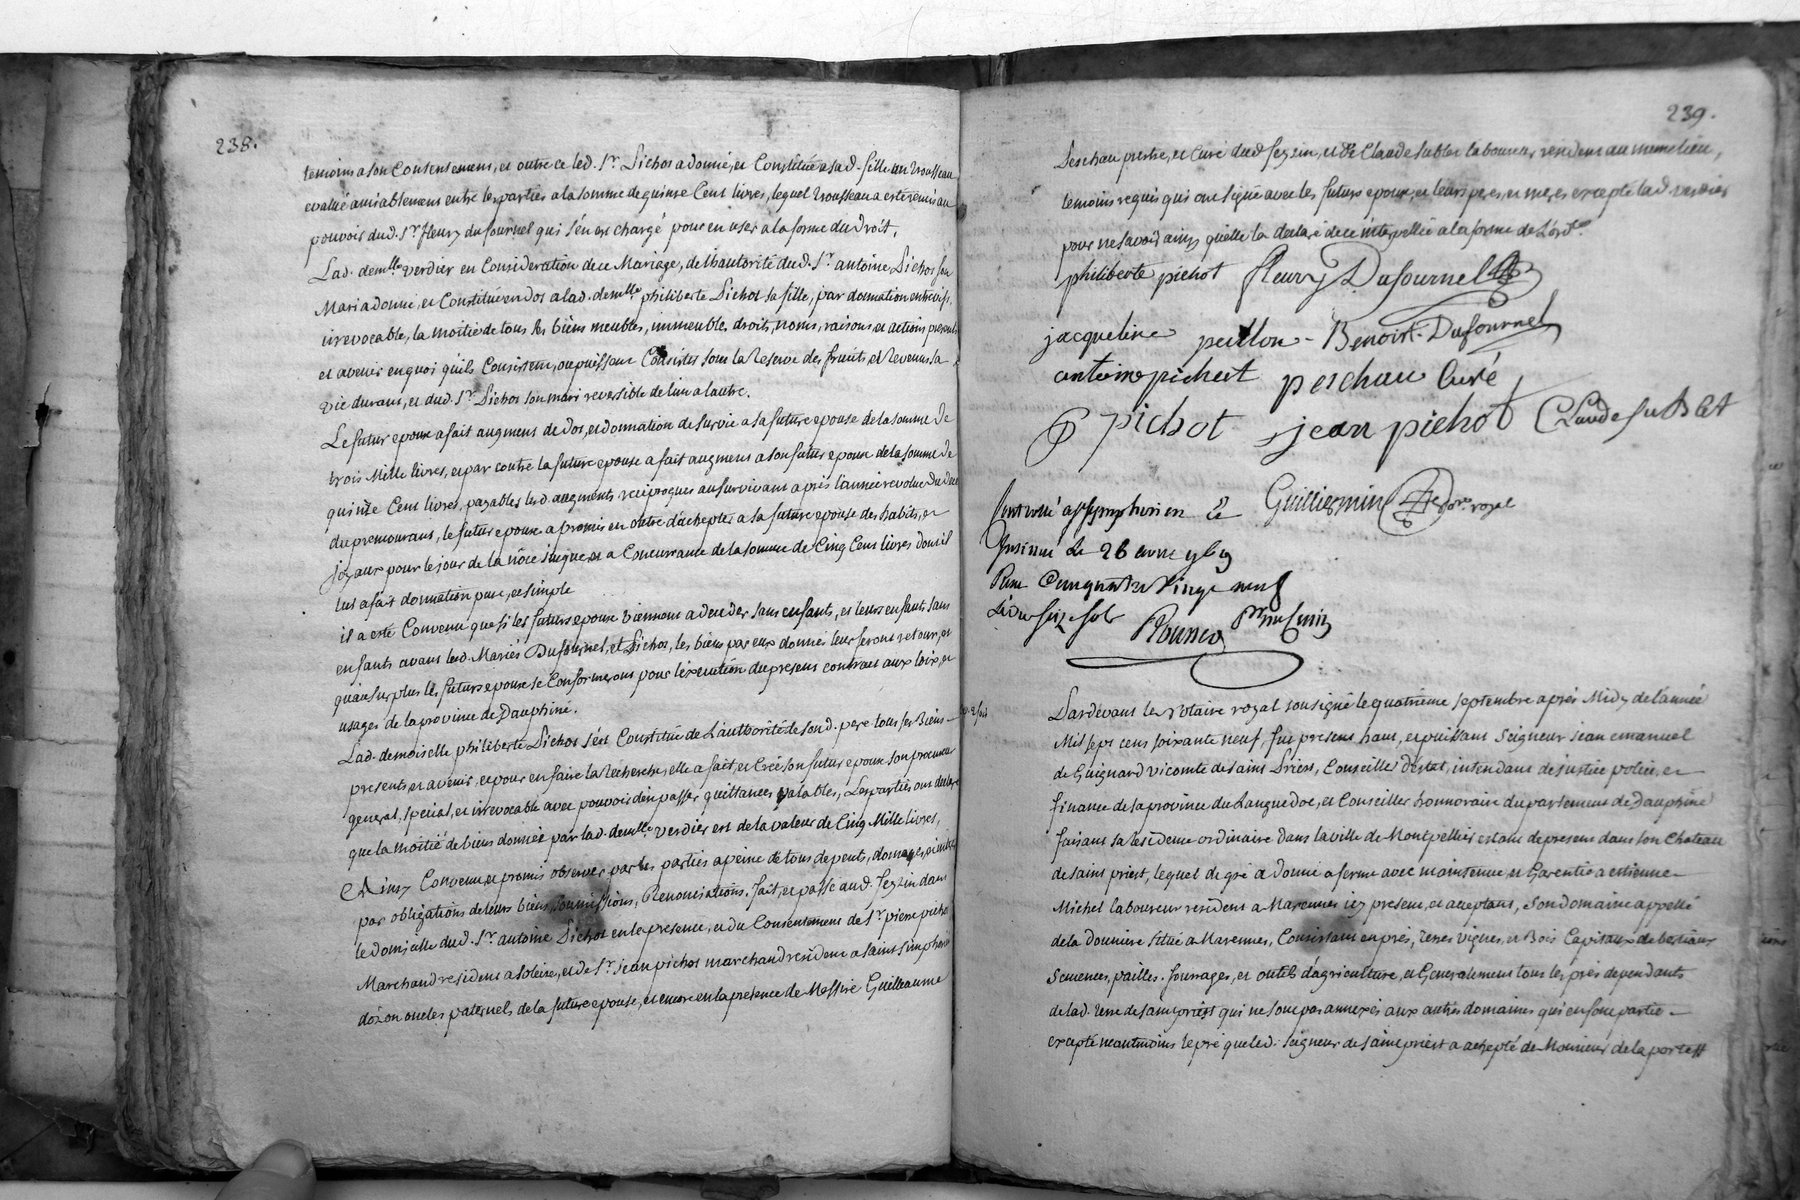 238.
temoins a son Consentement, et outre ce led. Sr. Pichot a donné, et Constitué a sad. fille un trousseau
evalué amiablement entre les parties a la somme de quinse Cent livres, lequel trousseau a esté remis au
pouvoir dud. Sr. fleury dufournel qui s'en est chargé pour en user a la forme du droit.
Lad. demlle verdier en Consideration de ce Mariage, de l'hautorité dud. Sr. antoine Pichot son
Mari a donné, et Constitué en dot a lad. demlle philiberte Pichot sa fille, par donnation entre vifs,
irrevocable, la moitié de tous les biens meubles, immeubles, droits, noms, raisons et actions presents
et avenir en quoi qu'ils Consistent, ou puissent Consister sous la Reserve des fruits, et Revenus sa
vie durant, et dud. Sr. Pichot son mari reversible de l'un a l'autre.
Le futur epoux a fait augment de dot, et donnation de survie a sa future epouse de la somme de
trois Mille livres, et par contre la future epouse a fait augment a son futur epoux de la somme de
quinze Cent livres, payables lesd. augments reciproques au survivant après l'année revolue du decé
du premourant, le futur epoux a promis en outre d'achepter a sa future epouse des habits, et
joyaux pour le jour de la nôce jusques a Concurrance de la somme de Cinq Cent livres dont il
lui a fait donnation pure, et simple
il a esté Convenu que si les futurs epoux viennent a deceder sans enfants, et leurs enfants sans
enfants avant lesd. Mariés Dufournel, et Pichot, les biens par eux donnés leur feront retour, et
qu'au surplus les futurs epoux se Conformeront pour l'execution du present contrat aux loix, et
usages de la province de Dauphiné.
Lad. demoiselle philiberte Pichot s'est Constitué de L'authorité de sond. pere tous ses Biens
presents, et avenir, et pour en faire la Recherche, elle a fait, et Créé son futur epoux son procureur
general, special, et irrevocable avec pouvoir d'en passer quittances valables, Les parties ont declaré
que la moitié de biens donnée par lad. demlle verdier est de la valeur de Cinq Mille livres,
Ainsy Convenu, et promis observer par les parties a peine de tous depents, domages, et interets
par obligations de leurs biens, soumissions, Renonciations. fait, et passé aud. feyzin dans
le domicille dud. Sr. antoine Pichot en le presence, et du Consentement de Sr. pierre pichot
Marchand resident a soleise, et de Sr. jean pichot marchand resident a saint simphorien
dozon oncles paternels de la future epouse, et encore en la presence de Messire Guilleaume
239.
Peschau prestre, et Curé dud. feyzin, et de Claude sublet laboureur resident au meme lieu,
temoins requis qui ont signé avec les futurs epoux, et leurs peres, et meres excepté lad. verdier
pour ne savoir ainsy qu'elle l'a declaré de ce interpellée a la forme de L'ordce.
philiberte pichot fleury Dufournel
jacqueline peillon - Benoist Dufournel
antoine pichot peschau Curé
P pichot jean pichot Claude Sublet
Guilliermin Nore. royal
Controllé a st symphorien &
Insinué Le 26 avril 1769
Lardevant le Notaire royal sousigné le quatrième septembre après Midy de l'année
Mil sept cens soixante neuf, fut present haut, et puissant Seigneur jean emanuel
de Guignard vicomte de saint Priest, Conseiller d'estat, intendant de justice police, et
finance de la province du Languedoc, et Conseiller honnoraire du parlement de Dauphiné
faisant sa residence ordinaire dans la ville de Montpellier estant de present dans son Chateau
de saint priest, lequel de gré a donné a ferme avec maintenue, et Garentie a etienne
Michel laboureur resident a Marennes icy present, et acceptant, son domaine appellé
de la Donniere situé a Marennes, Consistant en prés, terres vignes, et Bois Capitaux de bestiaux
Semences, pailles, fourrages, et outils d'agriculture, et Generalement tous les prés dependants
de lad. terre de saint priest qui ne sont pas annexés aux autres domaines qui en font partie
excepté neantmoins le pré que led. seigneur de saint priest a achepté de Monsieur de la porte